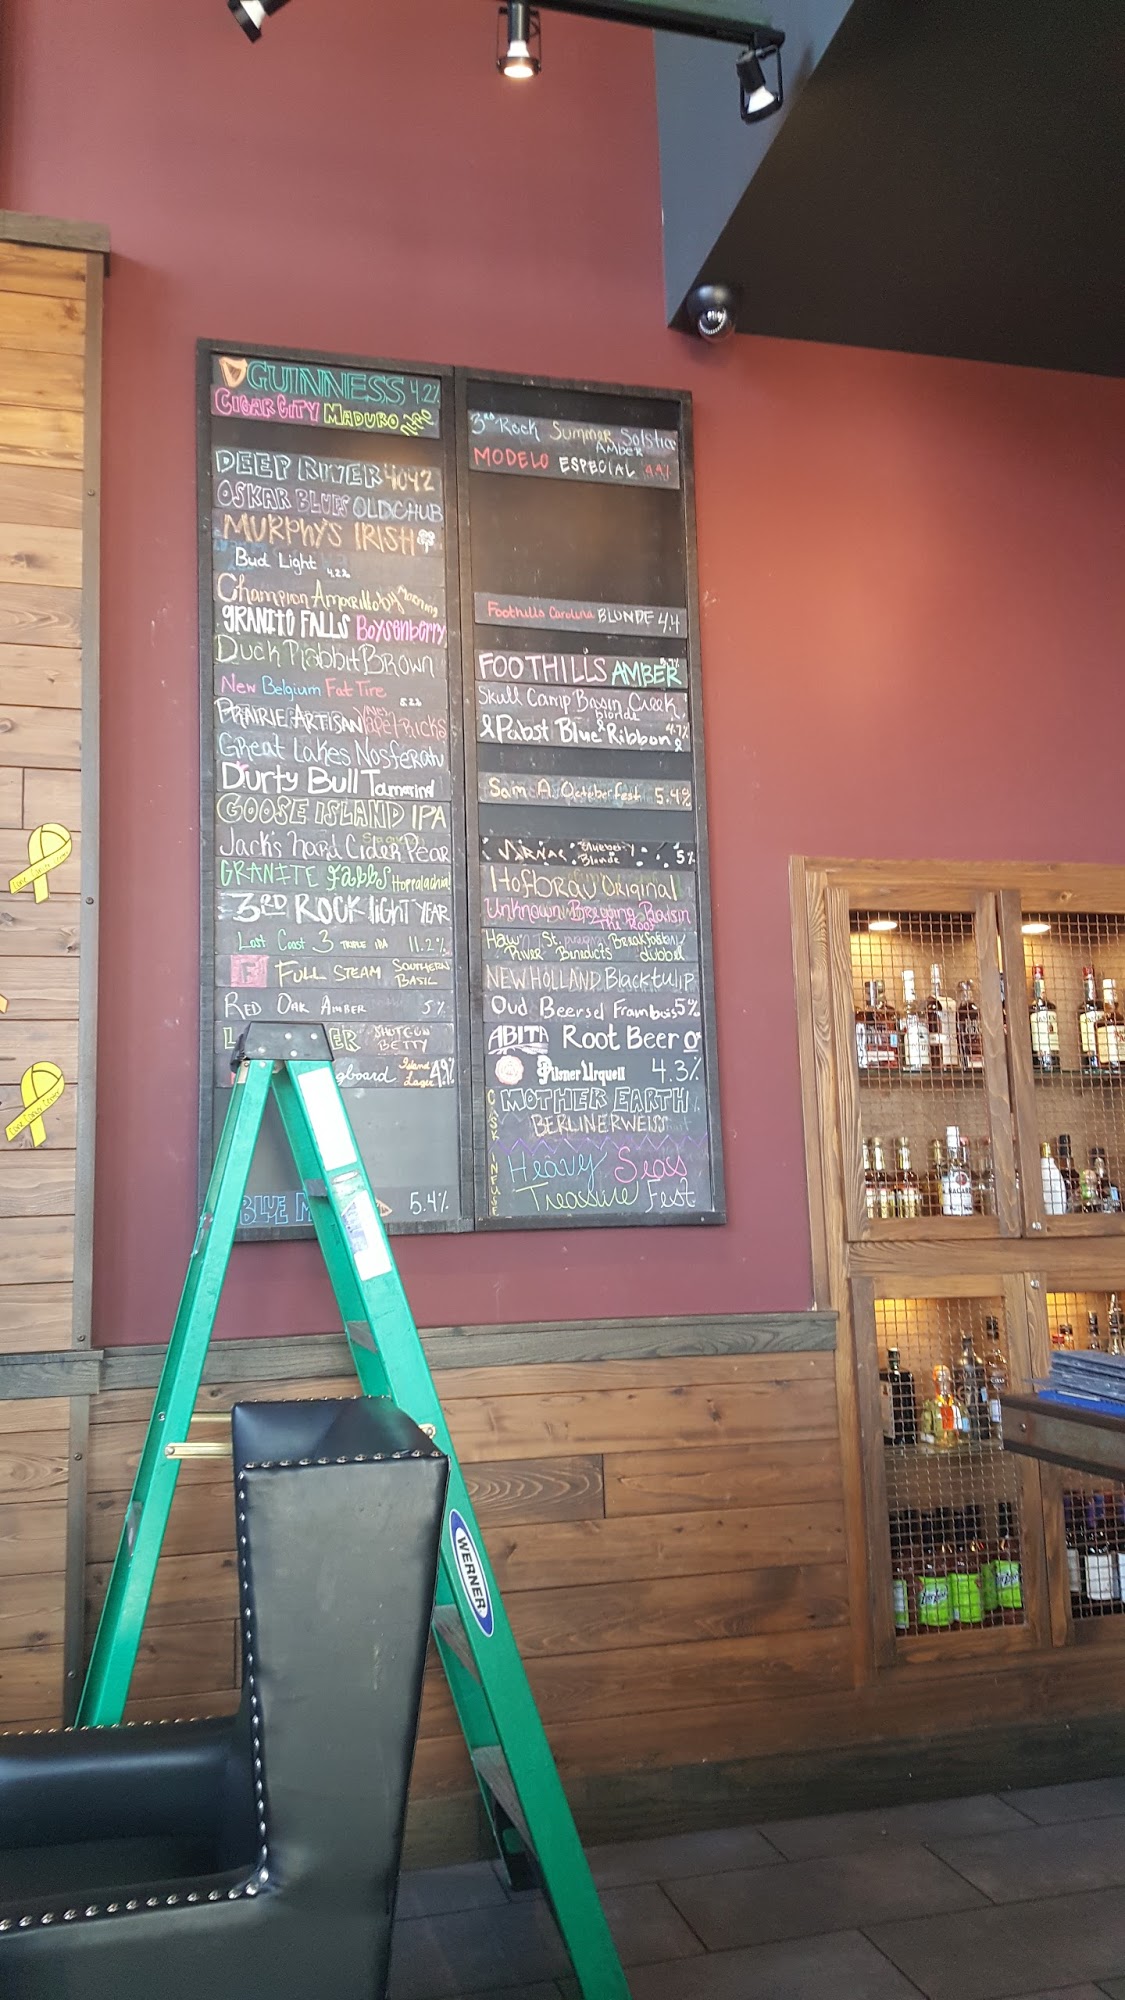 GUINNESS 4.2%
CIGAR CITY MADURO NITRO
DEEP RIVER 4042
OSKAR BLUES OLD CHUB
MURPHY'S IRISH
Bud Light 4.2%
Champion Amarillo by Morning
GRANITE FALLS Boysenberry
Duck Rabbit Brown
New Belgium Fat Tire 5.2%
PRAIRIE ARTISAN Vape Tricks
Great Lakes Nosferatu
Durty Bull Tamarind
GOOSE ISLAND IPA
Jack's Hard Cider Pear
GRANITE Falls Hoppalachia
3RD ROCK light YEAR
Lost Coast 3 TRIPLE IPA 11.2%
F FULL STEAM SOUTHERN BASIL
RED OAK AMBER 5%
L ER SHOTGUN BETTY
gboard Island Lager 4.9%
BLUE M 5.4%
3RD Rock Summer Solstice
Amber
MODELO ESPECIAL 4.4%
Foothills Carolina BLONDE 4.4
FOOTHILLS AMBER
Skull Camp Basin Creek
blonde
Pabst Blue Ribbon 4.7%
Sam A. Octoberfest 5.4%
Blueberry
Blonde 5%
Hofbrau Original
Unknown Brewing Raisin
The Roof
Haw St. Breakfast
River Benedicts dubbel
NEW HOLLAND Black tulip
Oud Beersel Frambois 5%
ABITA Root Beer 0
Pilsner Urquell 4.3%
CASK MOTHER EARTH
BERLINERWEISS
INFUSE Heavy Seas
Treasure Fest
WERNER